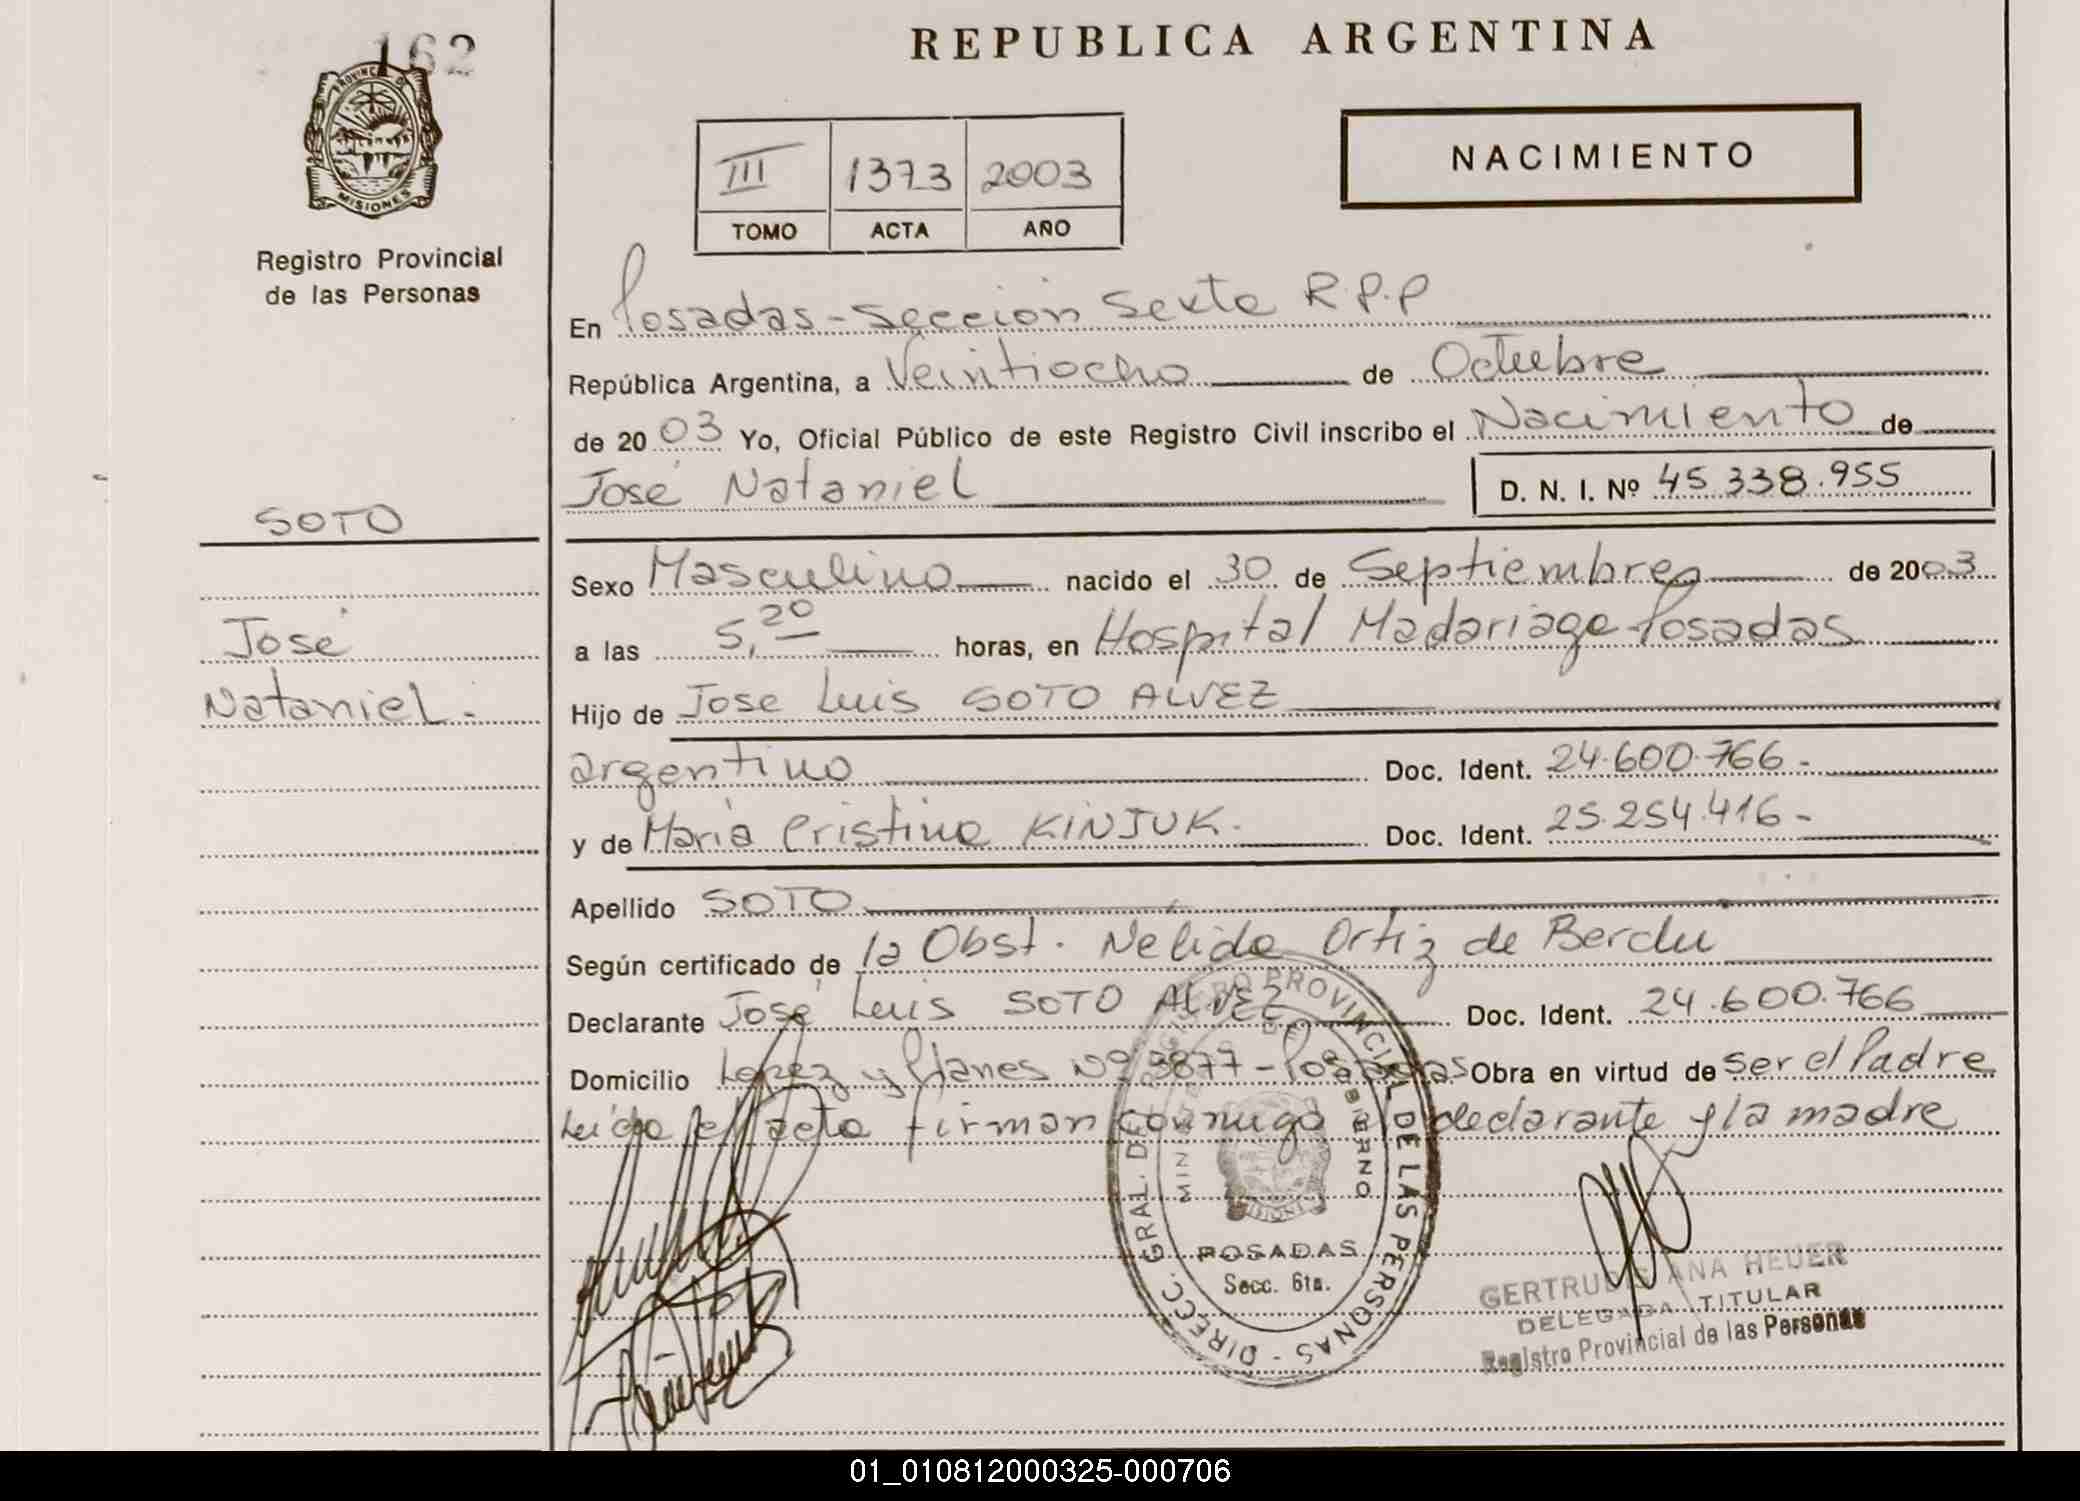 162
REPUBLICA ARGENTINA
PROVINCIA DE MISIONES
Registro Provincial
de las Personas
III 1373 2003
TOMO ACTA AÑO
NACIMIENTO
En Posadas - Sección Sexta R.P.P
República Argentina, a Veintiocho de Octubre
de 2003 Yo, Oficial Público de este Registro Civil inscribo el Nacimiento de
José Nataniel D. N. I. Nº 45.338.955
SOTO
José
Nataniel.-
Sexo Masculino nacido el 30 de Septiembre de 2003
a las 5,20 horas, en Hospital Madariaga-Posadas
Hijo de Jose Luis SOTO ALVEZ
argentino Doc. Ident. 24.600.766-
y de María Cristina KINJUK. Doc. Ident. 25.254.416-
Apellido SOTO
Según certificado de la Obst. Nelida Ortiz de Berdu
Declarante José Luis SOTO ALVEZ Doc. Ident. 24.600.766
Domicilio Lopez y Planes Nº 3877-Posadas Obra en virtud de ser el Padre
Leída el acta firman conmigo el declarante y la madre
DIRECC. GRAL. DEL REGISTRO PROVINCIAL DE LAS PERSONAS
MINISTERIO DE GOBIERNO
MISIONES
POSADAS
Secc. 6ta.
GERTRUDIS ANA HEUER
DELEGADA TITULAR
Registro Provincial de las Personas
01_010812000325-000706